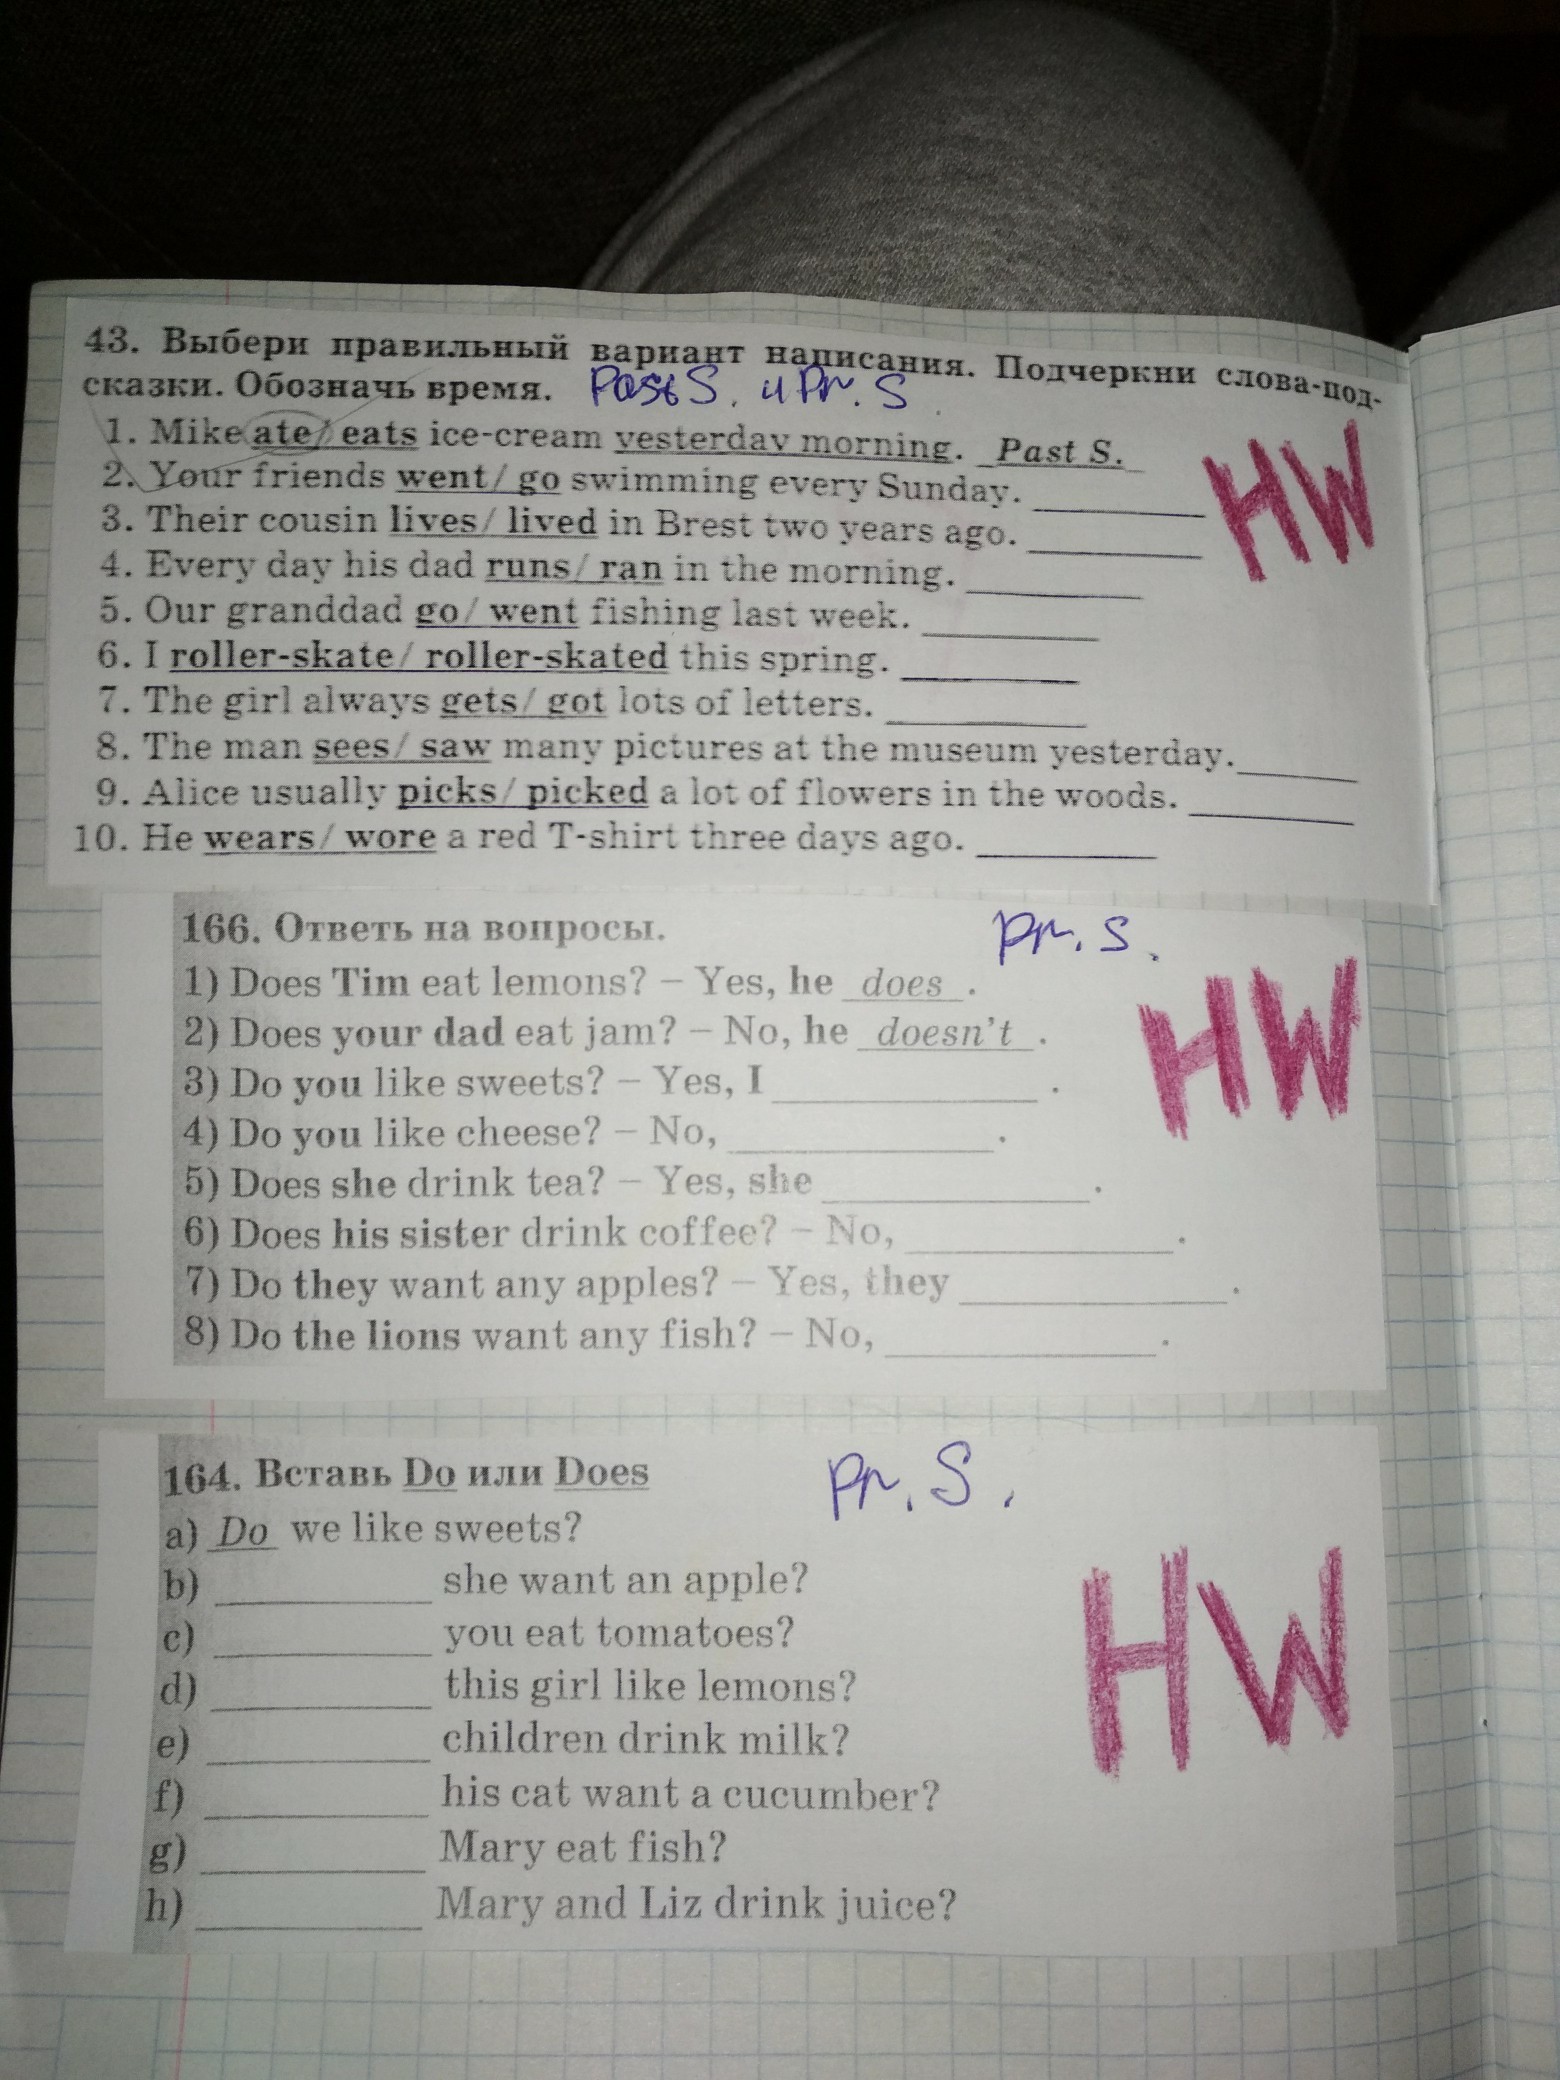 43. Выбери правильный вариант написания. Подчеркни слова-под-
сказки. Обозначь время. Past S. и Pr. S
1. Mike ate/ eats ice-cream yesterday morning. Past S.
2. Your friends went/ go swimming every Sunday. ________
3. Their cousin lives/ lived in Brest two years ago. ________
4. Every day his dad runs/ ran in the morning. ________
5. Our granddad go/ went fishing last week. ________
6. I roller-skate/ roller-skated this spring. ________
7. The girl always gets/ got lots of letters. ________
8. The man sees/ saw many pictures at the museum yesterday. ________
9. Alice usually picks/ picked a lot of flowers in the woods. ________
10. He wears/ wore a red T-shirt three days ago. ________
HW
166. Ответь на вопросы. Pr. S.
1) Does Tim eat lemons? – Yes, he does .
2) Does your dad eat jam? – No, he doesn't .
3) Do you like sweets? – Yes, I ________ .
4) Do you like cheese? – No, ________ .
5) Does she drink tea? – Yes, she ________ .
6) Does his sister drink coffee? – No, ________ .
7) Do they want any apples? – Yes, they ________ .
8) Do the lions want any fish? – No, ________ .
HW
164. Вставь Do или Does Pr. S.
a) Do we like sweets?
b) ________ she want an apple?
c) ________ you eat tomatoes?
d) ________ this girl like lemons?
e) ________ children drink milk?
f) ________ his cat want a cucumber?
g) ________ Mary eat fish?
h) ________ Mary and Liz drink juice?
HW